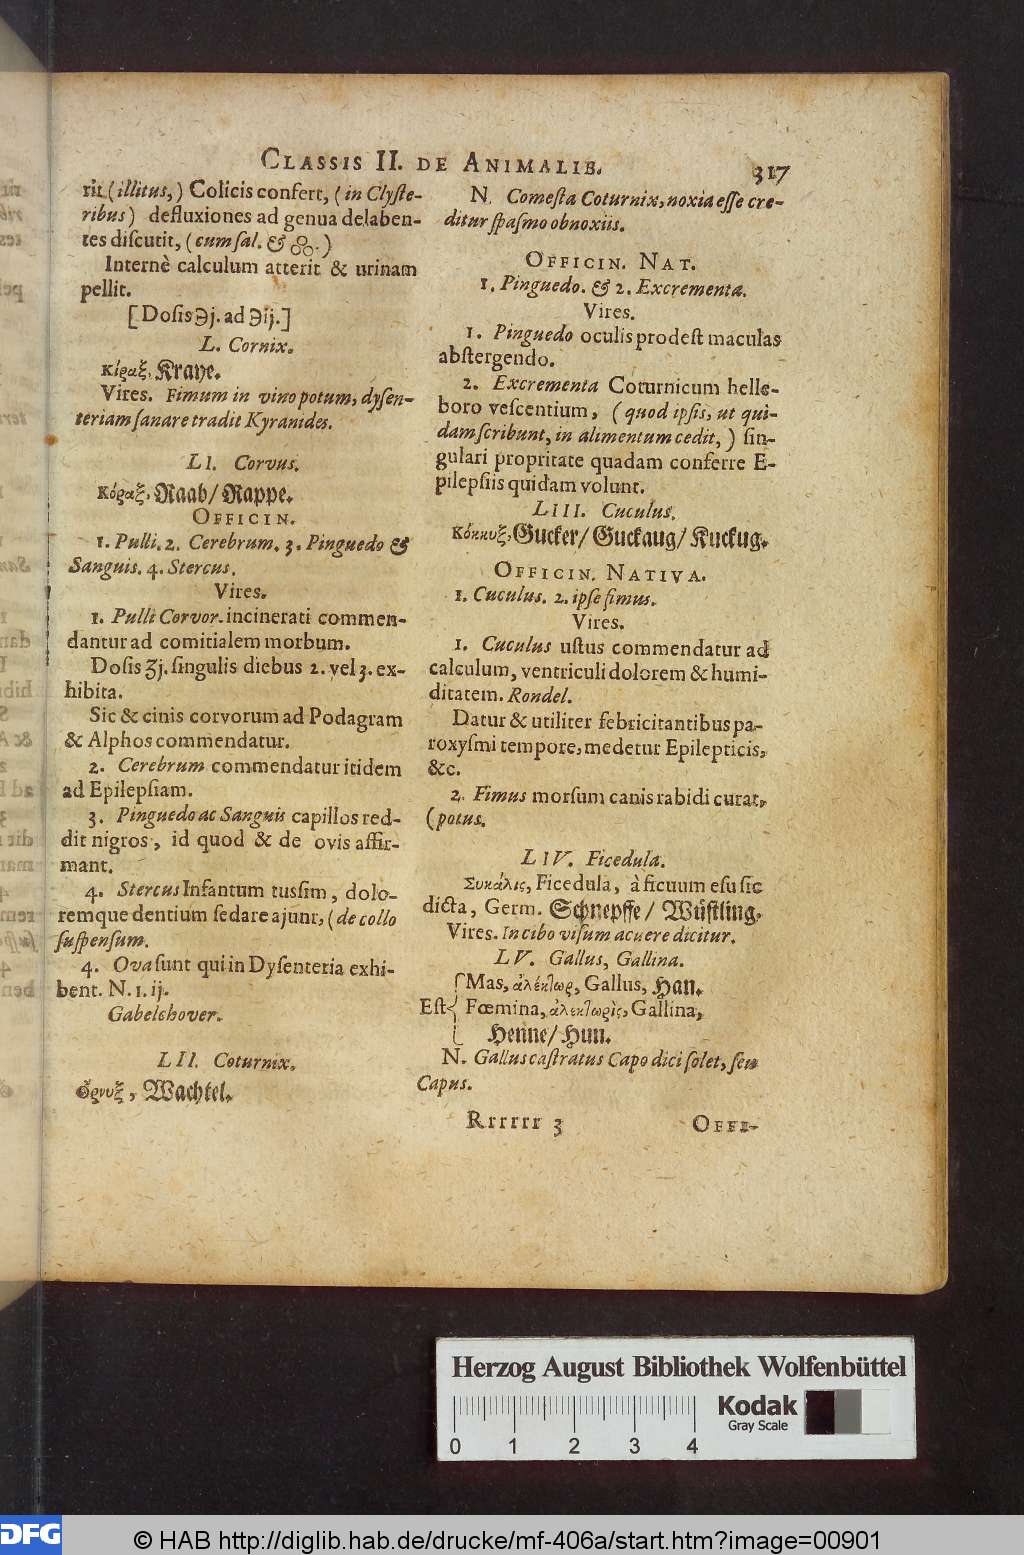 CLASSIS II. DE ANIMALIB. 317
rit (illitus,) Colicis confert, (in Clyste-
ribus) defluxiones ad genua delaben-
tes discutit, (cum sal. &
Internè calculum atterit & urinam
pellit.
[Dosis ℈j. ad ℈ij.]
L. Cornix.
Κίραξ, Kraye.
Vires. Fimum in vino potum, dysen-
teriam sanare tradit Kyranides.
LI. Corvus.
Κόραξ, Raab/ Rappe.
OFFICIN.
1. Pulli. 2. Cerebrum. 3. Pinguedo &
Sanguis. 4. Stercus.
Vires.
1. Pulli Corvor. incinerati commen-
dantur ad comitialem morbum.
Dosis ʒj. singulis diebus 2. vel 3. ex-
hibita.
Sic & cinis corvorum ad Podagram
& Alphos commendatur.
2. Cerebrum commendatur itidem
ad Epilepsiam.
3. Pinguedo ac Sanguis capillos red-
dit nigros, id quod & de ovis affir-
mant.
4. Stercus Infantum tussim, dolo-
remque dentium sedare ajunt, (de collo
suspensum.
4. Ova sunt qui in Dysenteria exhi-
bent. N. 1. ij.
Gabelchover.
LII. Coturnix.
Ὄρτυξ, Wachtel.
N. Comesta Coturnix, noxia esse cre-
ditur spasmo obnoxiis.
OFFICIN. NAT.
1. Pinguedo. & 2. Excrementa.
Vires.
1. Pinguedo oculis prodest maculas
abstergendo.
2. Excrementa Coturnicum helle-
boro vescentium, (quod ipsis, ut qui-
dam scribunt, in alimentum cedit,) sin-
gulari propritate quadam conferre E-
pilepsiis quidam volunt.
LIII. Cuculus.
Κόκκυξ, Gucker/ Guckaug/ Kuckug.
OFFICIN. NATIVA.
1. Cuculus. 2. ipse fimus.
Vires.
1. Cuculus ustus commendatur ad
calculum, ventriculi dolorem & humi-
ditatem. Rondel.
Datur & utiliter febricitantibus pa-
roxysmi tempore, medetur Epilepticis,
&c.
2. Fimus morsum canis rabidi curat,
(potus.
LIV. Ficedula.
Συκάλις, Ficedula, à ficuum esu sic
dicta, Germ. Schnepffe/ Wüstling.
Vires. In cibo visum acuere dicitur.
LV. Gallus, Gallina.
Mas, ἀλέκτωρ, Gallus, Han.
Est Fœmina, ἀλεκτωρὶς, Gallina,
Henne/ Hun.
N. Gallus castratus Capo dici solet, seu
Capus.
Rrrrrr 3 OFFI-
Herzog August Bibliothek Wolfenbüttel
Kodak
Gray Scale
0 1 2 3 4
DFG
© HAB http://diglib.hab.de/drucke/mf-406a/start.htm?image=00901